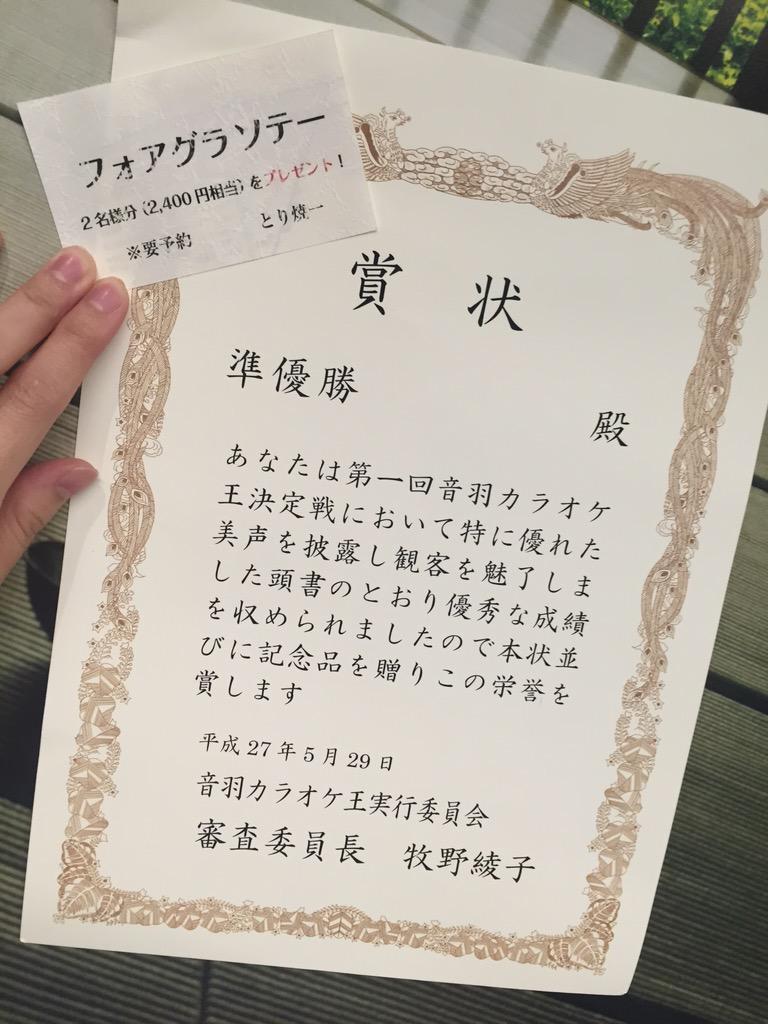 フォアグラソテー
2名様分（2,400円相当）をプレゼント！
※要予約 とり焼一
賞状
準優勝
殿
あなたは第一回音羽カラオケ
王決定戦において特に優れた
美声を披露し観客を魅了しま
した頭書のとおり優秀な成績
を収められましたので本状並
びに記念品を贈りこの栄誉を
賞します
平成27年5月29日
音羽カラオケ王実行委員会
審査委員長 牧野綾子